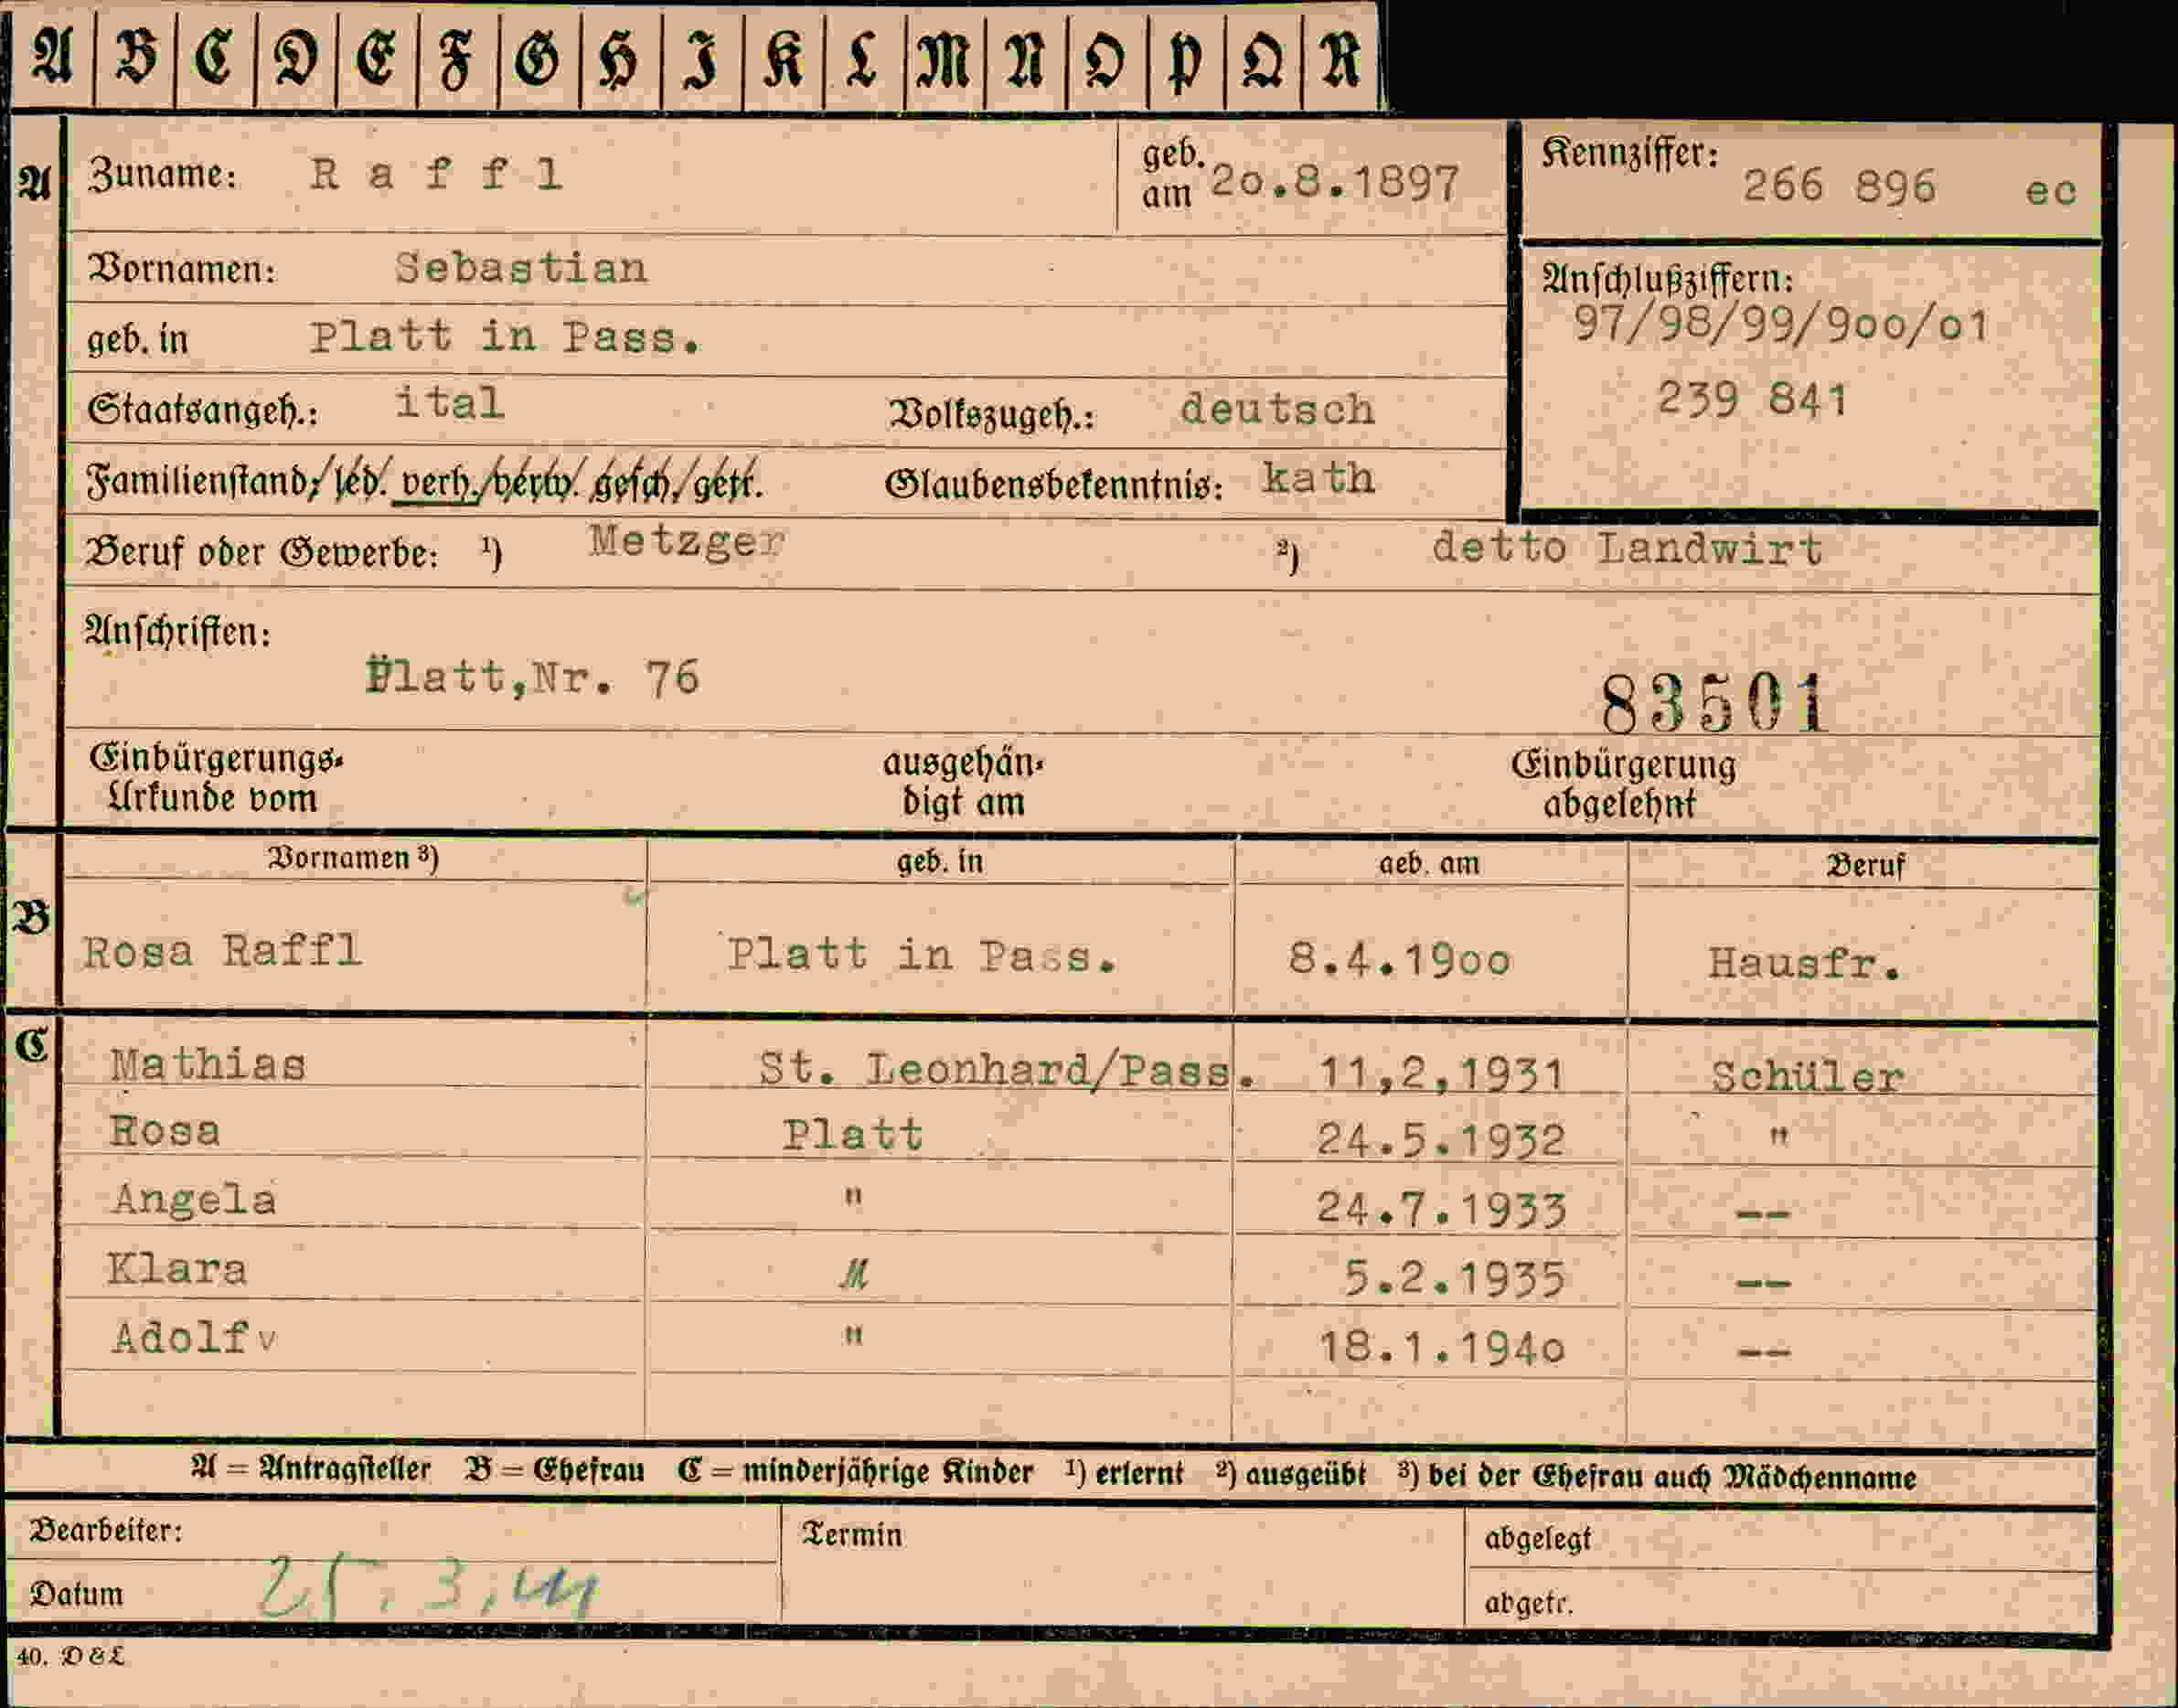 A B C D E F G H I K L M N O P Q R
A Zuname: Raffl geb. am 20.8.1897 Kennziffer: 266 896 ec
Vornamen: Sebastian
Anschlußziffern:
97/98/99/900/01
geb. in Platt in Pass.
Staatsangeh.: ital Volkszugeh.: deutsch 239 841
Familienstand: led. verh. verw. gesch. getr. Glaubensbekenntnis: kath
Beruf oder Gewerbe: 1) Metzger 2) detto Landwirt
Anschriften:
Platt,Nr. 76 83501
Einbürgerungs- ausgehän- Einbürgerung
Urkunde vom digt am abgelehnt
Vornamen 3) geb. in geb. am Beruf
B Rosa Raffl Platt in Pass. 8.4.1900 Hausfr.
C Mathias St. Leonhard/Pass. 11,2,1931 Schüler
Rosa Platt 24.5.1932 "
Angela " 24.7.1933 --
Klara " 5.2.1935 --
Adolf v " 18.1.1940 --
A = Antragsteller B = Ehefrau C = minderjährige Kinder 1) erlernt 2) ausgeübt 3) bei der Ehefrau auch Mädchenname
Bearbeiter: Termin abgelegt
Datum 25. 3. abgetr.
40. D & L